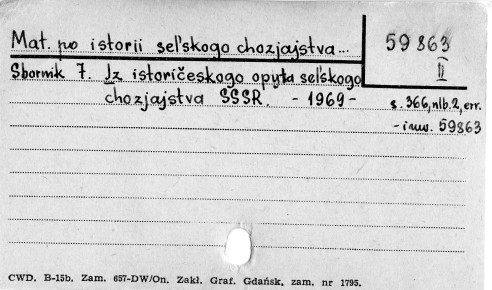 Mat. po istorii sel'skogo chozjajstva...
59863
II
Sbornik 7. Iz istoričeskogo opyta sel'skogo
chozjajstva SSSR. - 1969 -
s. 366, nlb. 2, err.
- inw. 59863
CWD. B-15b. Zam. 657-DW/On. Zakł. Graf. Gdańsk, zam. nr 1795.